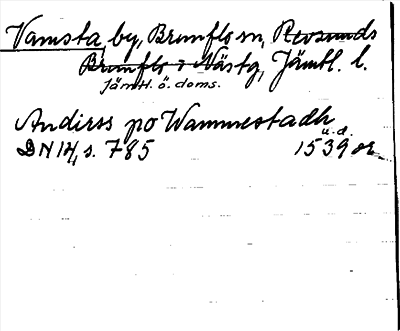 Vamsta, by, Brunflo sn, Revsunds
Brunflo o Nästg, Jämtl. l.
Jämtl. ö. doms.
Anderss po Wammestadh
u.d.
DN 14, s. 785 1539 or